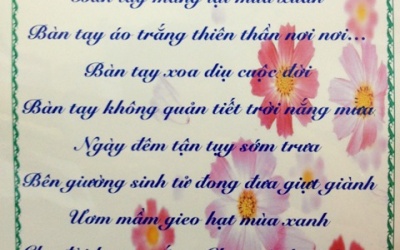 Bàn tay mang lại mùa xuân
Bàn tay áo trắng thiên thần nơi nơi...
Bàn tay xoa dịu cuộc đời
Bàn tay không quản tiết trời nắng mưa
Ngày đêm tận tụy sớm trưa
Bên giường sinh tử đong đưa giựt giành
Ươm mầm gieo hạt mùa xanh